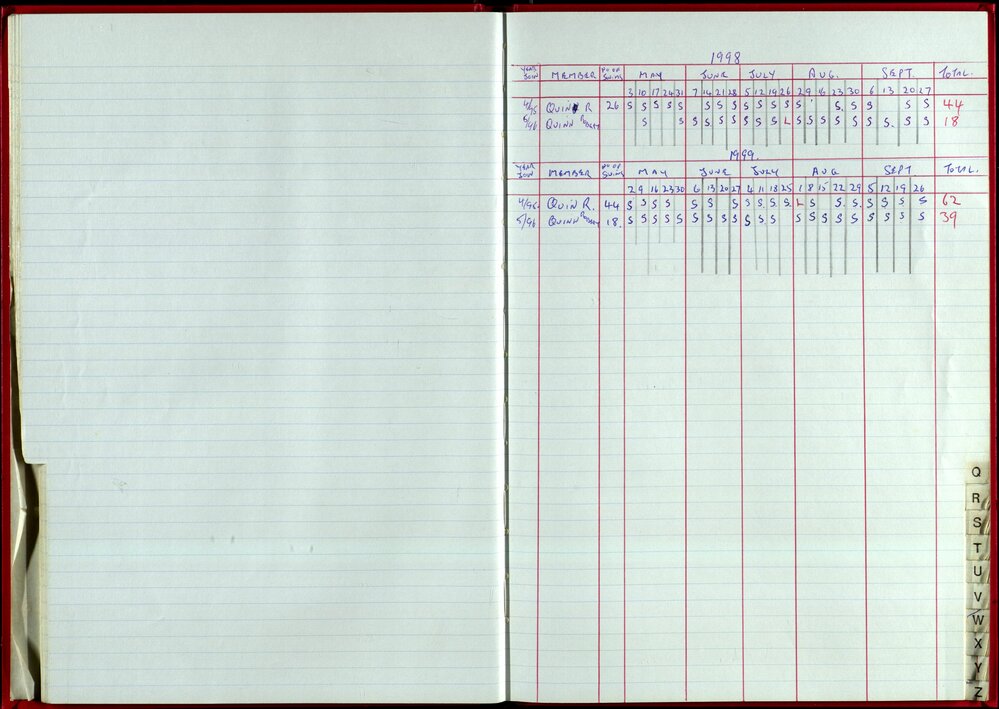 1998
YEAR JOIN MEMBER NO OF SWIMS MAY JUNE JULY AUG. SEPT. TOTAL.
3 10 17 24 31 7 14 21 28 5 12 19 26 2 9 16 23 30 6 13 20 27
4/95 QUINN R 26 S S S S S S S S S S S S S S S S S S S 44
5/96 QUINN S S S S S S S S S L S S S S S S S S S 18
1999.
YEAR JOIN MEMBER NO OF SWIMS MAY JUNE JULY AUG SEPT TOTAL.
2 9 16 23 30 6 13 20 27 4 11 18 25 1 8 15 22 29 5 12 19 26
4/96 QUINN R. 44 S S S S S S S S S S S L S S S S S S S 62
5/96 QUINN 18. S S S S S S S S S S S S S S S S S S S S S 39
Q
R
S
T
U
V
W
X
Y
Z